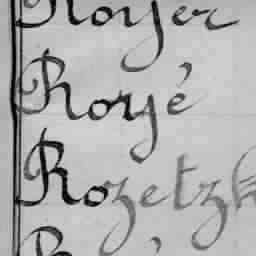 Royer
Royé
Rozetzk